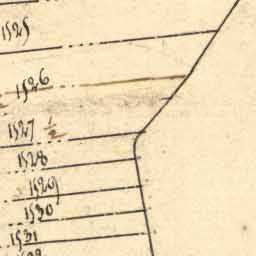 1525
1526
1527 ½
1528
1529
1530
1531